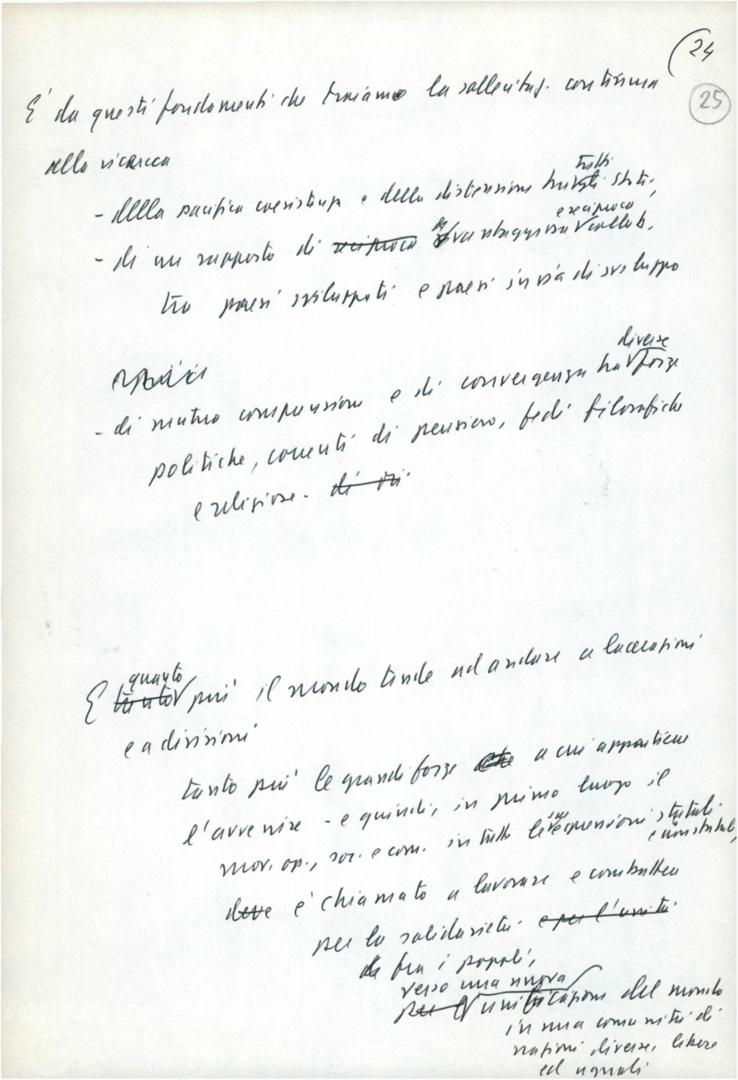 (24
25
E' da questi fondamenti che traiamo la sollecitaz. continua
alla ricerca
- della pacifica coesistenza e della distensione tra tutti gli stati,
- di un rapporto di reciproco vantaggioso e reciproca collab.
tra paesi sviluppati e paesi in via di sviluppo
- di mutua comprensione e di convergenza tra diverse forze
politiche, correnti di pensiero, fedi filosofiche
e religiose. di
E tanto quanto più il mondo tende ad andare a lacerazioni
e a divisioni
tanto più le grandi forze che a cui appartiene
l'avvenire - e quindi, in primo luogo il
mov. op., soc. e com. in tutte le sue espressioni statali
e non statali,
deve è chiamato a lavorare e combattere
per la solidarietà e per l'unità
fra i popoli,
verso una nuova
per l' unificazione del mondo
in una comunità di
nazioni diverse, libere
ed uguali